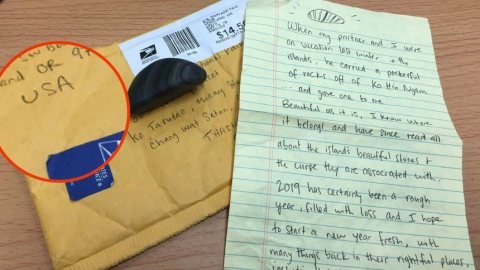 OR 97
USA
$14.50
Ko Tarutao, Mueang
Chang Wat Satun,
THAIL
When my partner and I were
on vacation last winter in the
islands, he carried a pocketful
of rocks off of Ko Hin Ngam
... and gave one to me.
Beautiful as it is, I know where
it belongs and have since read all
about the island's beautiful stones &
the curse they are associated with.
2019 has certainly been a rough
year, filled with loss and I hope
to start a new year fresh, with
many things back in their rightful places,